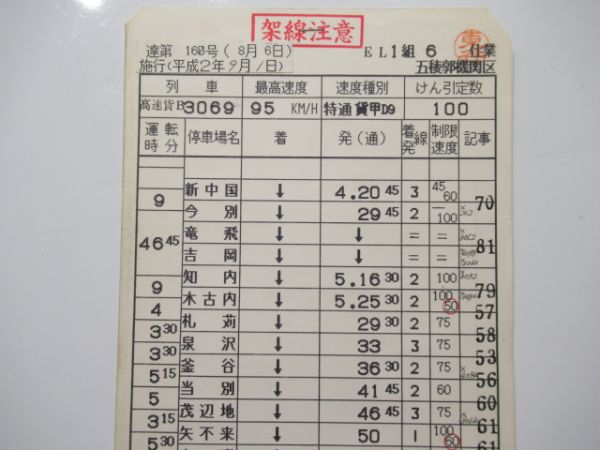 架線注意
達第 160号(8月6日) EL1組 6 仕業
施行(平成2年9月1日) 五稜郭機関区
列車 最高速度 速度種別 けん引定数
高速貨B3069 95 KM/H 特通貨甲D9 100
運転時分 停車場名 着 発(通) 着発線 制限速度 記事
新中国 ↓ 4.20 45 3 45 60
9 70
今別 ↓ 29 45 2 一 100
竜飛 ↓ ↓ = =
46 45 81
吉岡 ↓ ↓ = =
知内 ↓ 5.16 30 2 100
9 79
木古内 ↓ 5.25 30 2 100 50
4 57
札苅 ↓ 29 30 2 75
3 30 58
泉沢 ↓ 33 3 75
3 30 53
釜谷 ↓ 36 30 2 75
5 15 56
当別 ↓ 41 45 2 60
5 60
茂辺地 ↓ 46 45 3 75
3 15 61
矢不来 ↓ 50 1 100 60
5 30